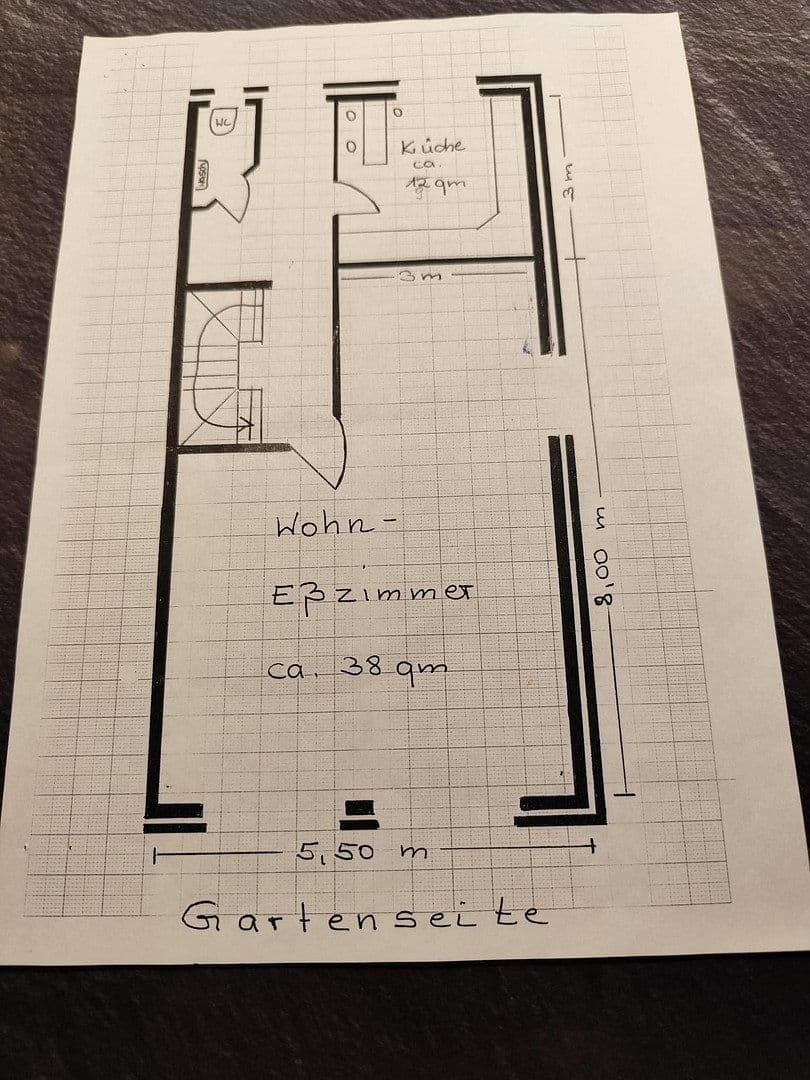 WC
Wasch
Küche
ca.
12 qm
9
3 m
3 m
Wohn-
Eßzimmer
ca. 38 qm
8,00 m
5,50 m
Gartenseite